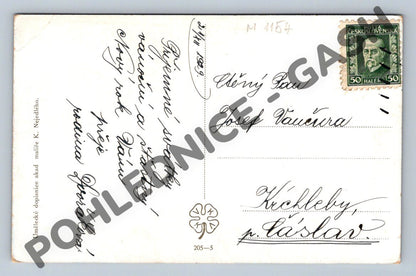 21/12 1929
M 1154
Příjemné svátky
vánoční a šťastný
Nový rok Vám
přeje
rodina
Umělecké dopisnice akad. malíře K. Nejedlého.
205—5
ČESKOSLOVENSKO
50 HALÉŘ 50
Ctěný Pan
Josef Vančura
Krchleby,
p. Čáslav.
POHLEDNICE - GASH